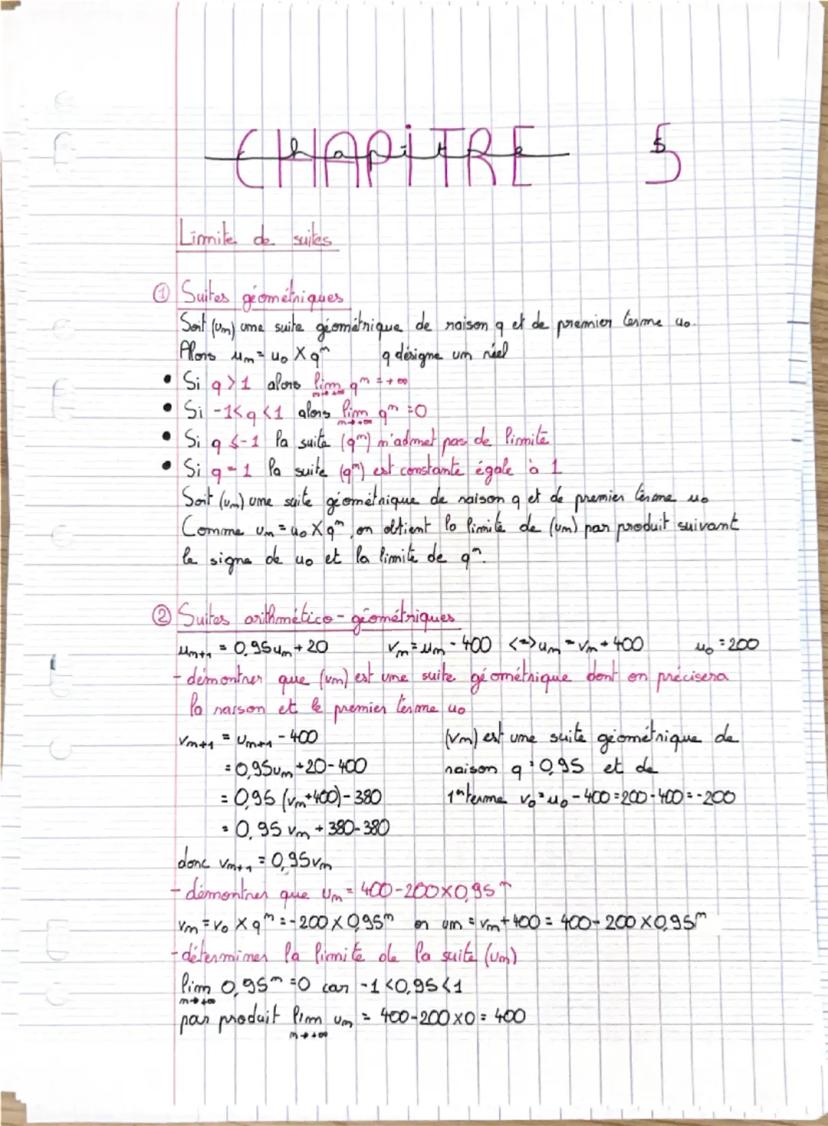 CHAPITRE 5
chapitre 5
Limite de suites
① Suites géométriques
Soit (un) une suite géométrique de raison q et de premier terme u0.
Alors un = u0 × qⁿ q désigne un réel
• Si q > 1 alors lim qⁿ = +∞
n→+∞
• Si -1 < q < 1 alors lim qⁿ = 0
n→+∞
• Si q ≤ -1 la suite (qⁿ) n'admet pas de limite
• Si q = 1 la suite (qⁿ) est constante égale à 1
Soit (un) une suite géométrique de raison q et de premier terme u0
Comme un = u0 × qⁿ, on obtient la limite de (un) par produit suivant
le signe de u0 et la limite de qⁿ.
② Suites arithmético-géométriques
un+1 = 0,95un + 20 vn = un - 400 <=> un = vn + 400 u0 = 200
- démontrer que (vn) est une suite géométrique dont on précisera
la raison et le premier terme u0
vn+1 = un+1 - 400 (vn) est une suite géométrique de
= 0,95un + 20 - 400 raison q = 0,95 et de
= 0,95 (vn + 400) - 380 1er terme v0 = u0 - 400 = 200 - 400 = -200
= 0,95 vn + 380 - 380
donc vn+1 = 0,95vn
- démontrer que un = 400 - 200 × 0,95ⁿ
vn = v0 × qⁿ = -200 × 0,95ⁿ or un = vn + 400 = 400 - 200 × 0,95ⁿ
- déterminer la limite de la suite (un)
lim 0,95ⁿ = 0 car -1 < 0,95 < 1
n→+∞
par produit lim un = 400 - 200 × 0 = 400
n→+∞